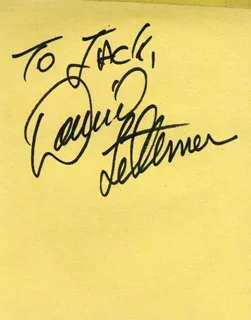 TO JACK,
David
Letterman